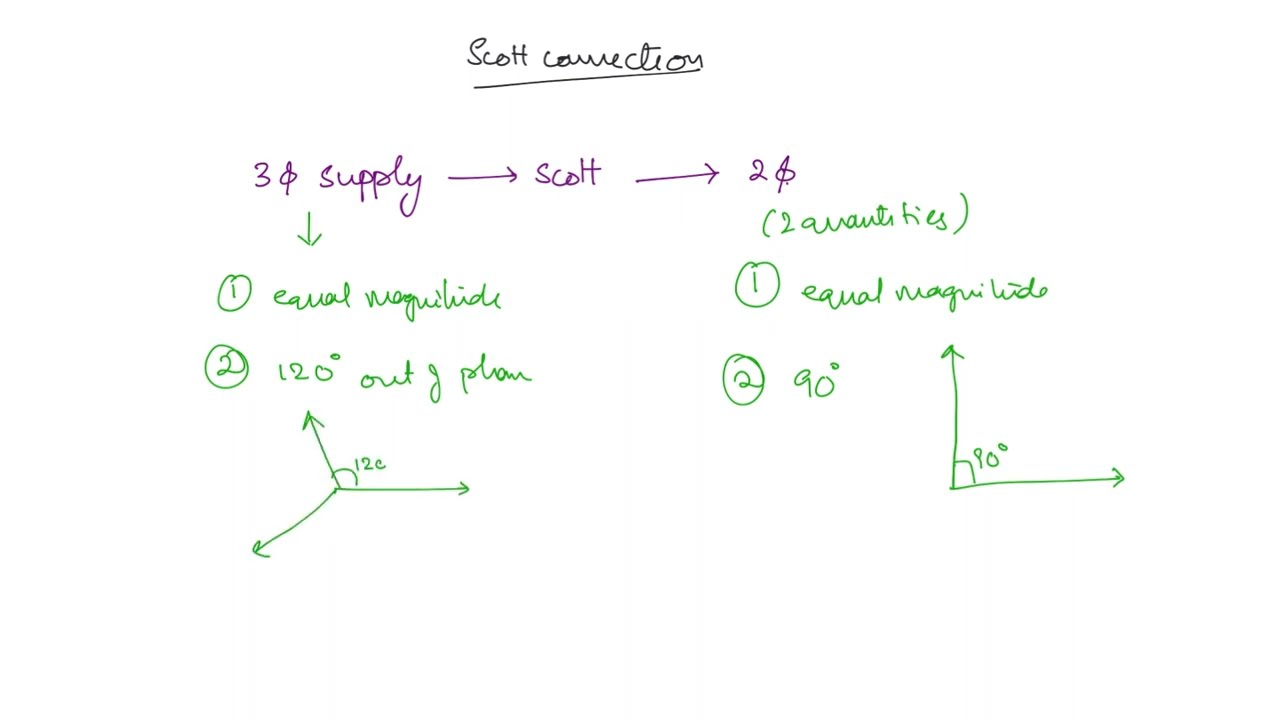 Scott connection
3φ supply → Scott → 2φ
(2 quantities)
① equal magnitude
① equal magnitude
② 120° out of phase
② 90°
120
90°